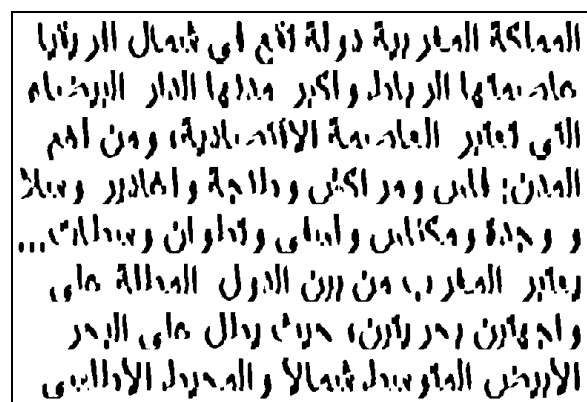 المملكة المغربية دولة تقع في شمال افريقيا
عاصمتها الرباط واكبر مدنها الدار البيضاء
التي تعتبر العاصمة الاقتصادية، ومن أهم
المدن: فاس ومراكش وطنجة واغادير وسلا
و وجدة ومكناس واسفي وتطوان وسطات...
يعتبر المغرب من بين الدول المطلة على
واجهتين بحريتين، حيث يطل على البحر
الأبيض المتوسط شمالا والمحيط الأطلسي